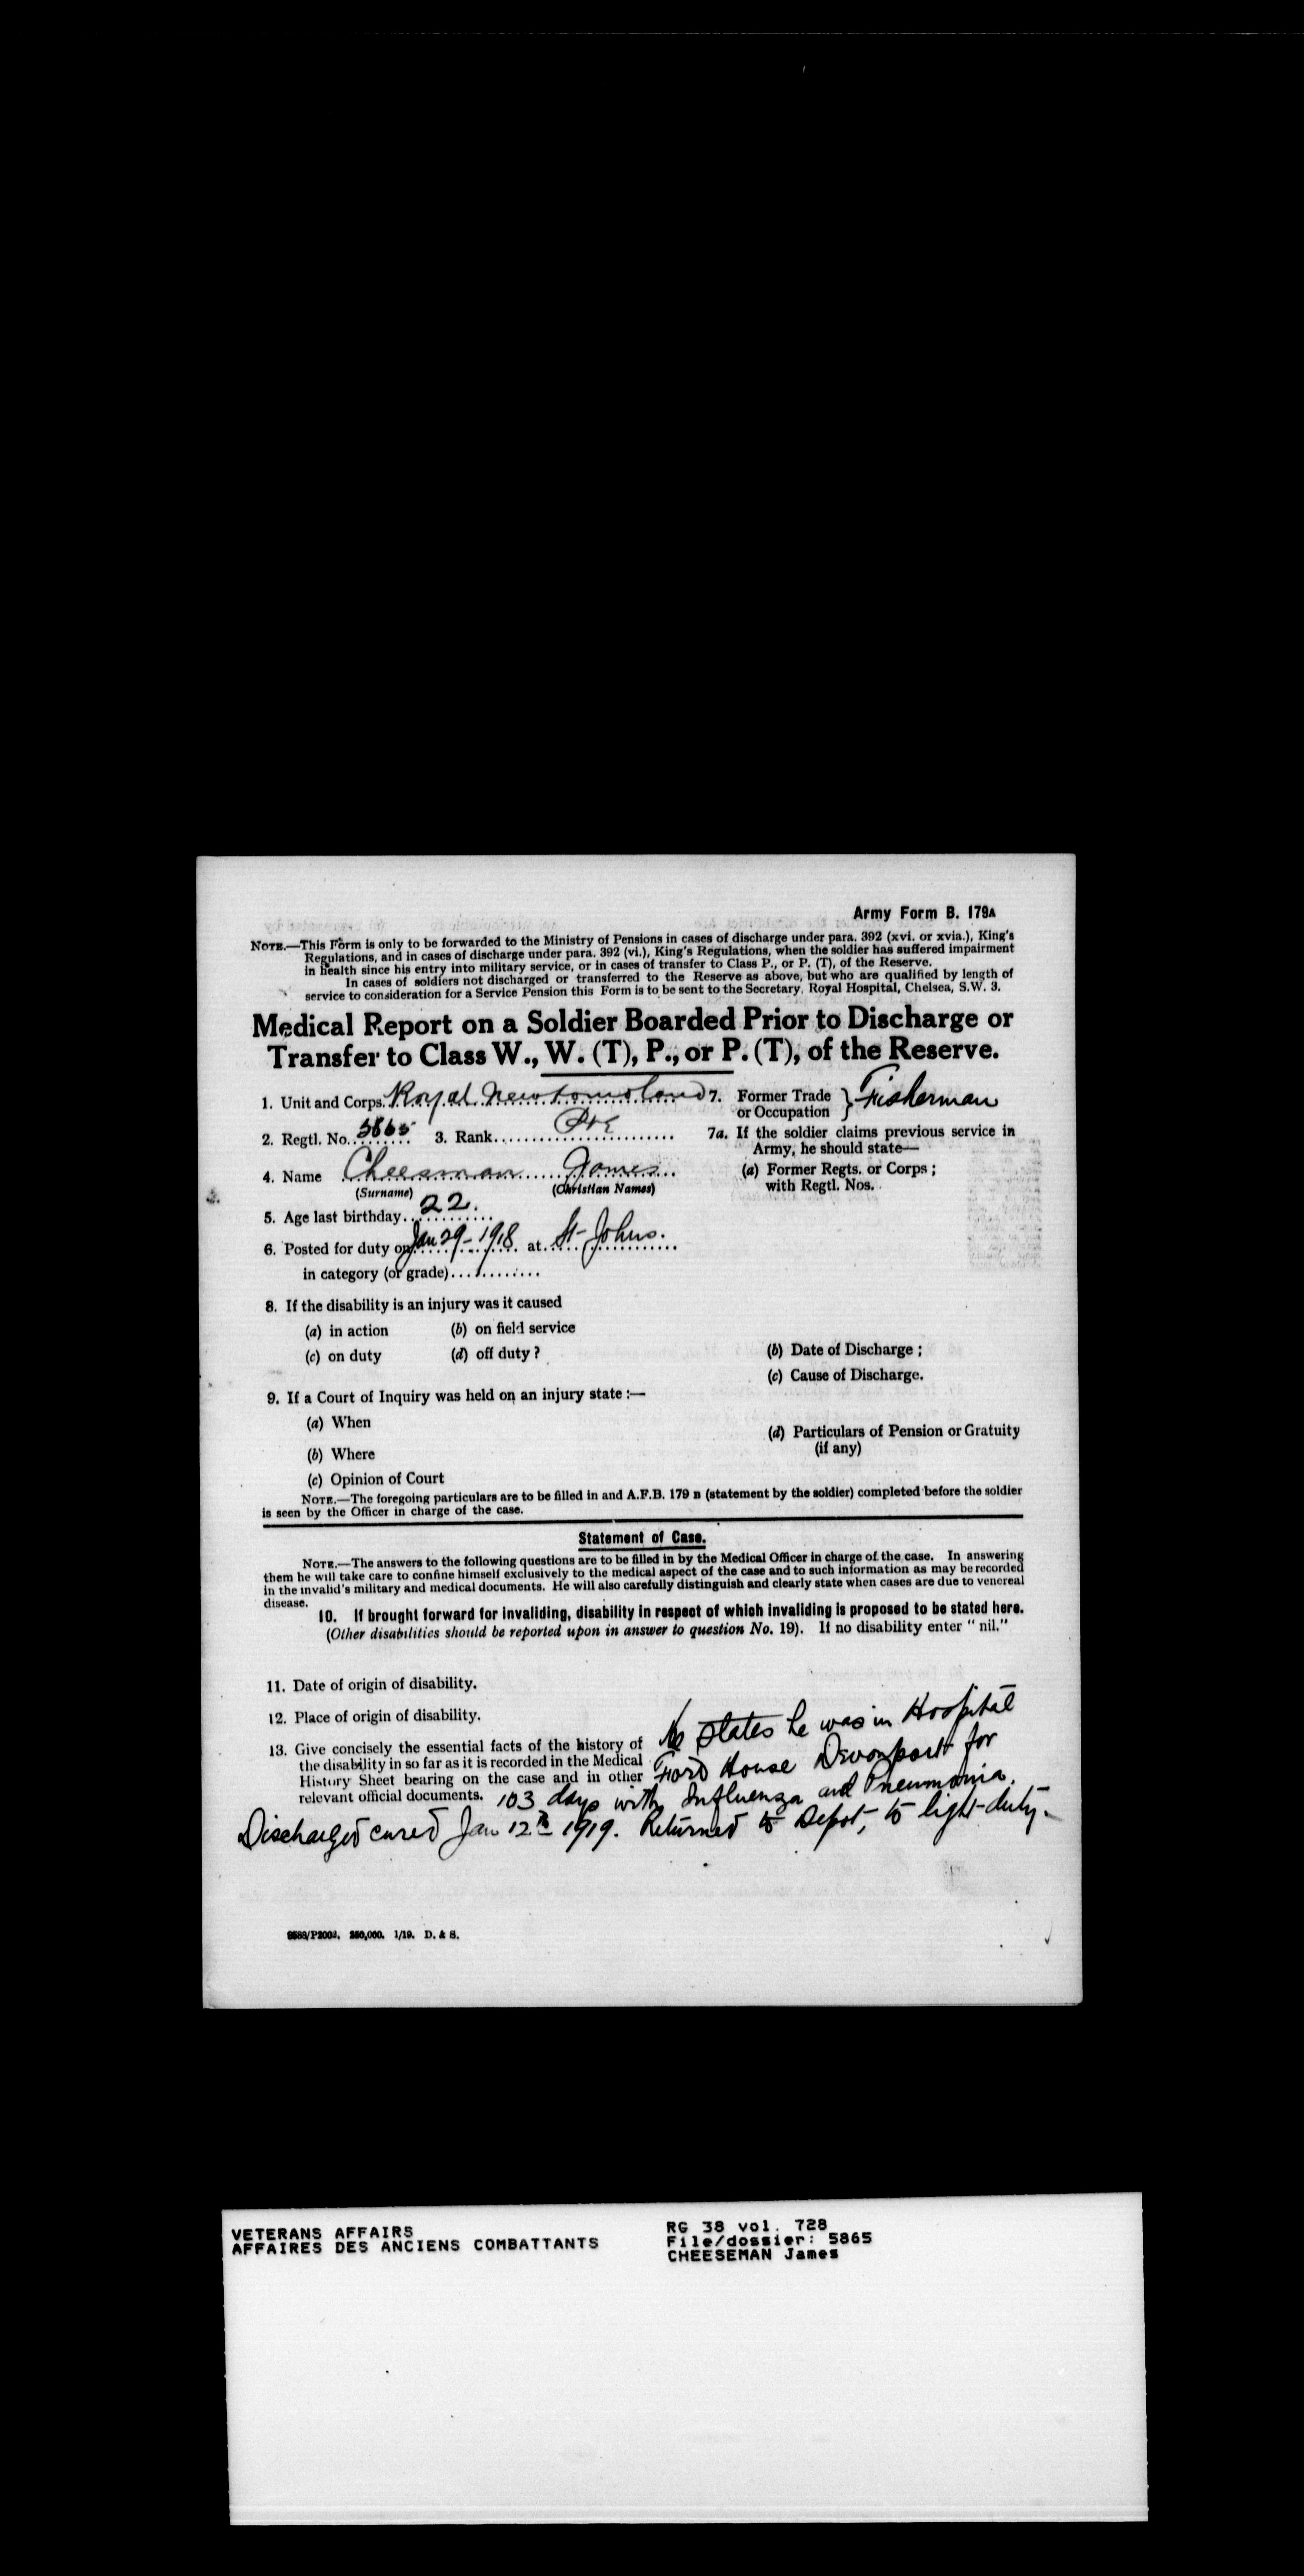 Army Form B. 179A
NOTE.—This Form is only to be forwarded to the Ministry of Pensions in cases of discharge under para. 392 (xvi. or xvia.), King's
Regulations, and in cases of discharge under para. 392 (vi.), King's Regulations, when the soldier has suffered impairment
in health since his entry into military service, or in cases of transfer to Class P., or P. (T), of the Reserve.
In cases of soldiers not discharged or transferred to the Reserve as above, but who are qualified by length of
service to consideration for a Service Pension this Form is to be sent to the Secretary, Royal Hospital, Chelsea, S.W. 3.
Medical Report on a Soldier Boarded Prior to Discharge or
Transfer to Class W., W. (T), P., or P. (T), of the Reserve.
1. Unit and Corps. Royal Newfoundland
7. Former Trade or Occupation } Fisherman
2. Regtl. No. 5865 3. Rank Pte
7a. If the soldier claims previous service in
Army, he should state—
4. Name Cheesman James
(Surname) (Christian Names)
(a) Former Regts. or Corps ;
with Regtl. Nos.
5. Age last birthday 22.
6. Posted for duty on Jan 29-1918 at St-Johns.
in category (or grade)
8. If the disability is an injury was it caused
(a) in action (b) on field service
(c) on duty (d) off duty ?
(b) Date of Discharge ;
(c) Cause of Discharge.
9. If a Court of Inquiry was held on an injury state :—
(a) When
(d) Particulars of Pension or Gratuity
(if any)
(b) Where
(c) Opinion of Court
NOTE.—The foregoing particulars are to be filled in and A.F.B. 179 B (statement by the soldier) completed before the soldier
is seen by the Officer in charge of the case.
Statement of Case.
NOTE.—The answers to the following questions are to be filled in by the Medical Officer in charge of the case. In answering
them he will take care to confine himself exclusively to the medical aspect of the case and to such information as may be recorded
in the invalid's military and medical documents. He will also carefully distinguish and clearly state when cases are due to venereal
disease.
10. If brought forward for invaliding, disability in respect of which invaliding is proposed to be stated here.
(Other disabilities should be reported upon in answer to question No. 19). If no disability enter " nil."
11. Date of origin of disability.
12. Place of origin of disability.
13. Give concisely the essential facts of the history of
the disability in so far as it is recorded in the Medical
History Sheet bearing on the case and in other
relevant official documents.
He states he was in Hospital
Ford House Devonport for
103 days with Influenza and Pneumonia.
Discharged cured Jan 12th 1919. Returned to Depot, to light-duty.
9588/P2002. 250,000. 1/19. D. & S.
VETERANS AFFAIRS
AFFAIRES DES ANCIENS COMBATTANTS
RG 38 vol. 728
File/dossier: 5865
CHEESEMAN James